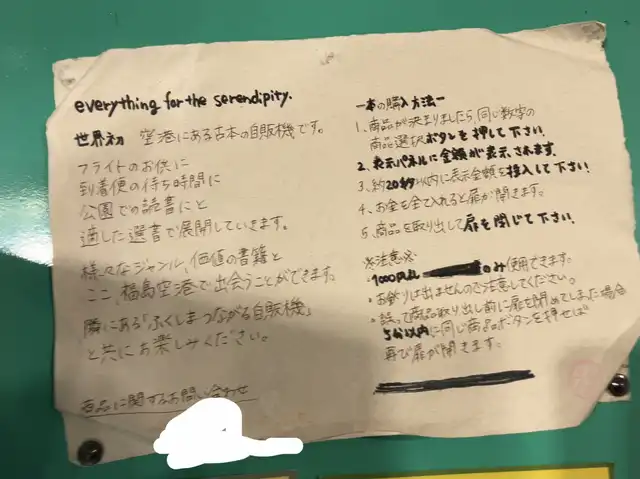 everything for the serendipity.
世界初 空港にある古本の自販機です。
フライトのお供に
到着便の待ち時間に
公園での読書にと
適した選書で展開していきます。
様々なジャンル、価値の書籍と
ここ、福島空港で出会うことができます。
隣にある「ふくしまつながる自販機」
と共にお楽しみください。
商品に関するお問い合わせ
ー本の購入方法ー
1、商品が決まりましたら、同じ数字の
商品選択ボタンを押して下さい。
2、表示パネルに金額が表示されます。
3、約20秒以内に表示金額を投入して下さい。
4、お金を全て入れると扉が開きます。
5、商品を取り出して扉を閉じて下さい。
※注意※
・1000円札 のみ使用できます。
・お釣りは出ませんのでご注意してください。
・誤って商品取り出し前に扉を閉めてしまった場合
5分以内に同じ商品ボタンを押せば
再び扉が開きます。